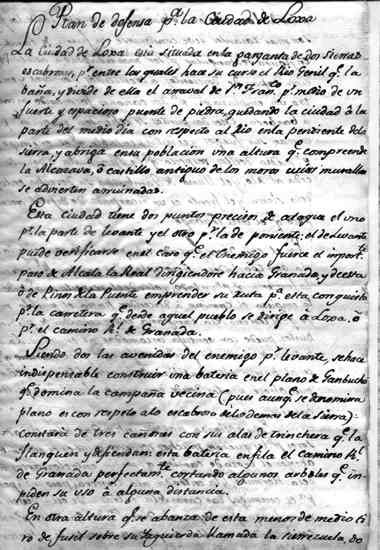 Plan de defensa p.ª la Ciudad de Loxa
La Ciudad de Loxa esta situada en la garganta de dos sierras
escabrosas p.r entre las quales hace su curso el Rio Genil q.e la
baña, y divide de ella el arraval de S.n Fran.co p.r medio de un
fuerte y espacioso puente de piedra, quedando la ciudad à la
parte del medio dia con respecto al Rio en la pendiente de la
sierra, y abriga en su poblacion una altura q.e comprende
la Alcazava, ò castillo antiguo de los moros cuias murallas
se advierten arruinadas.
Esta ciudad tiene dos puntos precisos de ataque el uno
p.r la parte de levante y el otro p.r la de poniente: el de levante
puede verificarse en el caso q.e el Enemigo fuerce el import.te
paso de Alcala la Real dirigiendose hacia Granada, y desta
ò de Pinos de la Puente emprender su ruta p.ª esta conquista
p.r la carretera q.e desde aquel pueblo se dirige à Loxa, ò
p.r el camino R.l de Granada.
Siendo dos las avenidas del enemigo p.r levante, se hace
indispensable construir una bateria en el plano de
q.e domina la campaña vecina (pues aunq.e se denomina
plano es con respeto a lo escabroso de lo demas de la sierra):
constará de tres cañones con sus alas de trinchera q.e la
flanqueen y defiendan: esta bateria enfila el camino R.l
de Granada perfectam.te cortando algunos arboles q.e im-
piden su uso à alguna distancia.
En otra altura q.e se abanza de esta menor de medio ti-
ro de fusil sobre su izquierda llamada la torrezuela, do